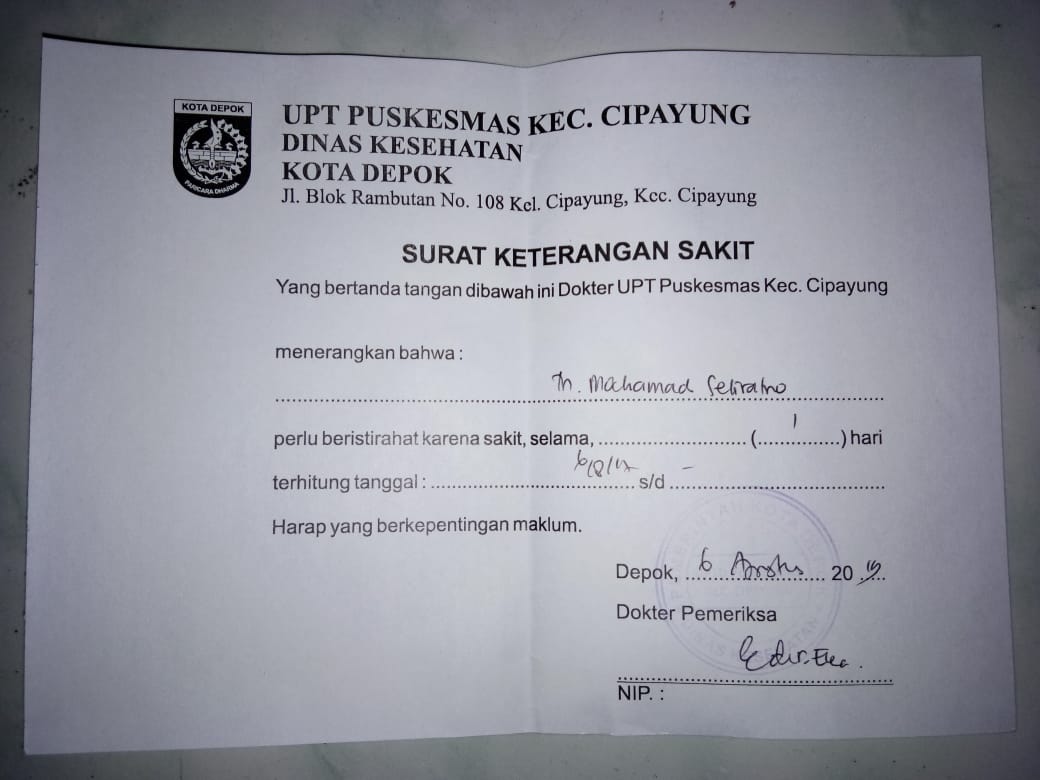 KOTA DEPOK
PARICARA DHARMA
UPT PUSKESMAS KEC. CIPAYUNG
DINAS KESEHATAN
KOTA DEPOK
Jl. Blok Rambutan No. 108 Kel. Cipayung, Kec. Cipayung
SURAT KETERANGAN SAKIT
Yang bertanda tangan dibawah ini Dokter UPT Puskesmas Kec. Cipayung
menerangkan bahwa :
Tn. Mochamad
perlu beristirahat karena sakit, selama, .......................... (......1.........) hari
terhitung tanggal : .................................... s/d ..-...................................
Harap yang berkepentingan maklum.
Depok, 6 Agustus 2019
Dokter Pemeriksa
NIP. :